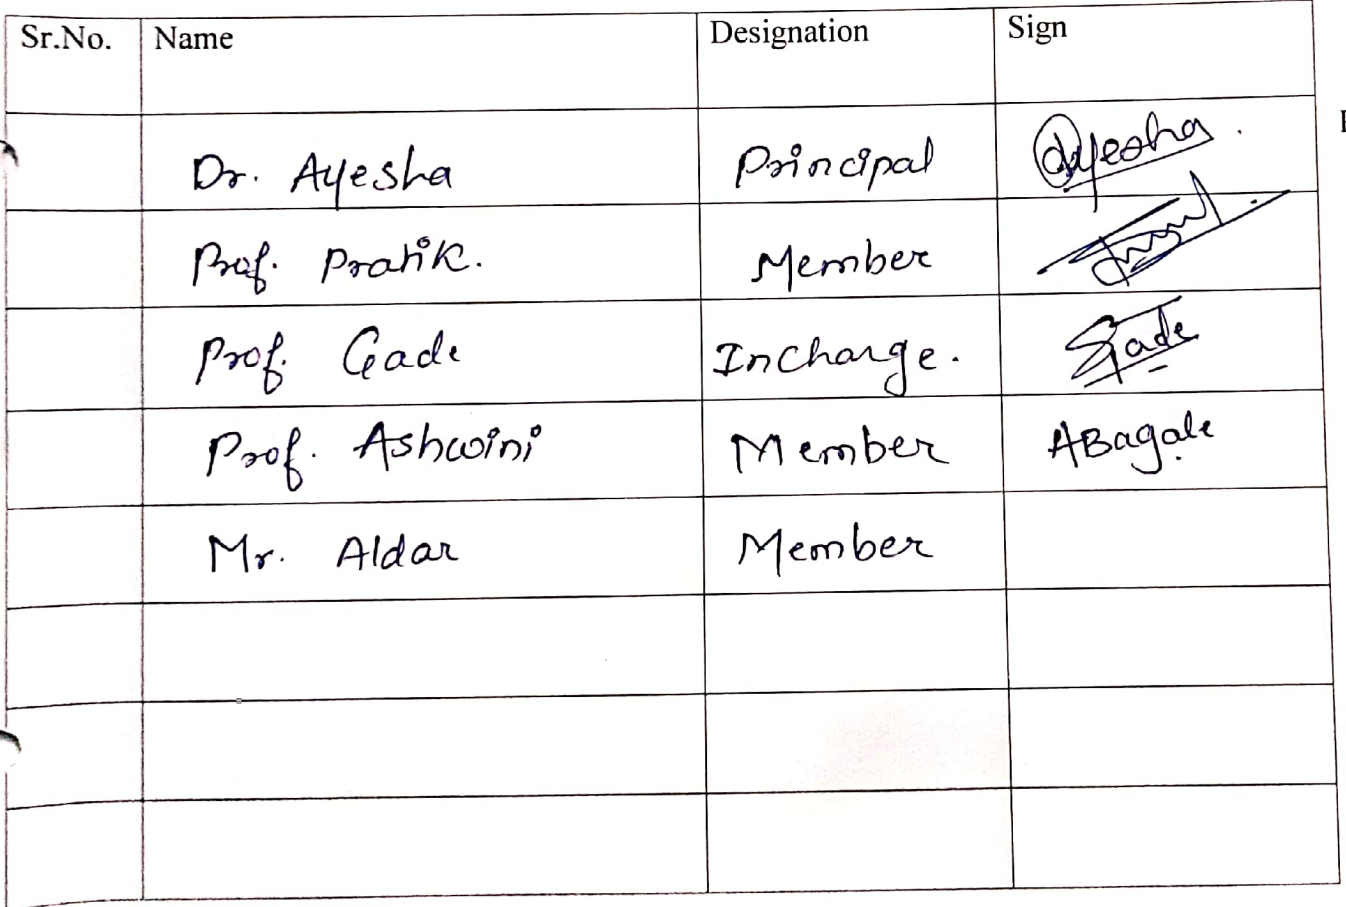 Sr.No. Name Designation Sign
Dr. Ayesha Principal Ayesha.
Prof. Pratik. Member
Prof. Gade Incharge. Gade
Prof. Ashwini Member ABagale
Mr. Aldar Member